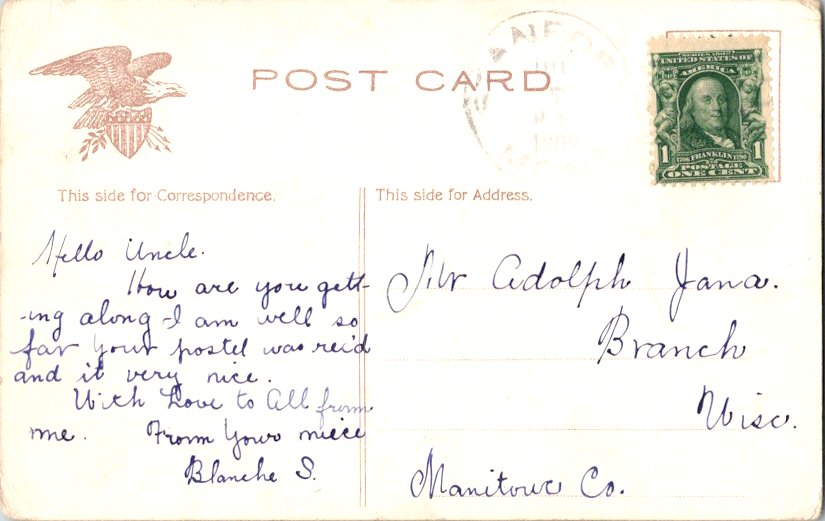 POST CARD
SERIES 1902
UNITED STATES OF
AMERICA
1706 FRANKLIN 1790
1 1
POSTAGE
ONE CENT
This side for Correspondence.
This side for Address.
Hello Uncle.
How are you gett-
-ing along - I am well so
far your postel was reid
and it very nice.
With Love to All from
me. From Your niece
Blanche S.
Mr Adolph Jana.
Branch
Wisc.
Manitowc Co.